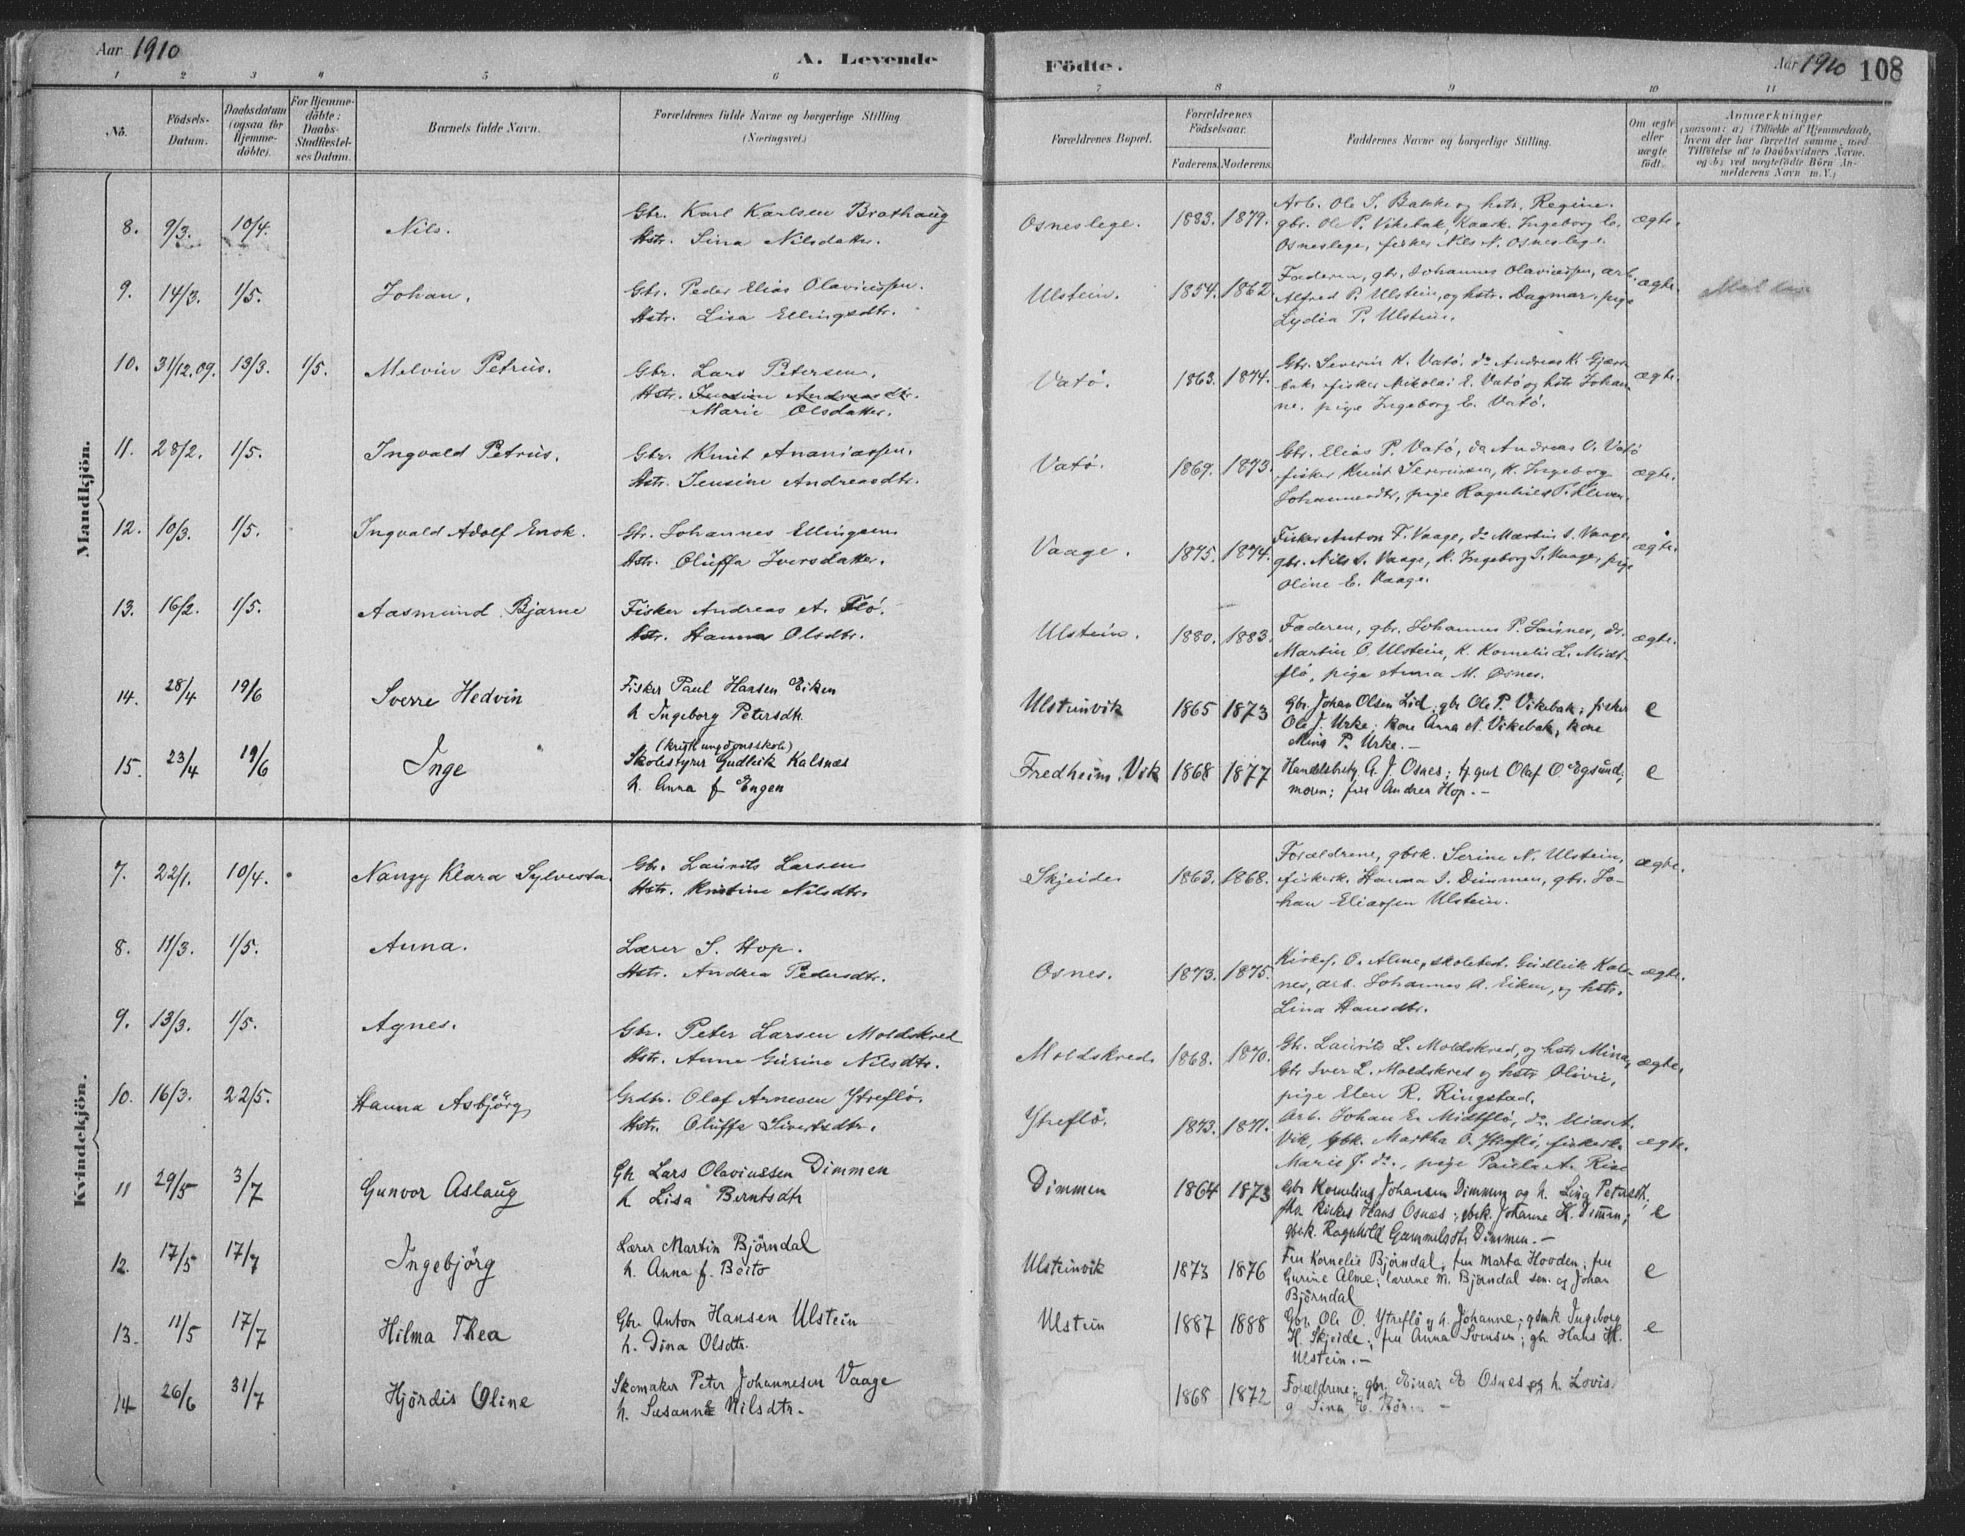 Aar 1910
A. Levende
Födte.
Aar 1910 108
1 2 3 4 5 6 7 8 9 10 11
No.
Födsels-
Datum.
Daabsdatum
(ogsaa for
Hjemme-
döbte).
For Hjemme-
döbte:
Daabs-
Stadfæstel-
ses Datum.
Barnets fulde Navn.
Forældrenes fulde Navne og borgerlige Stilling
(Næringsvei)
Forældrenes Bopæl.
Forældrenes
Födselsaar.
Faderens. Moderens.
Faddernes Navne og borgerlige Stilling.
Om ægte
eller
uægte
födt.
Anmærkninger
(saasom: a) (Tilfælde af Hjemmedaab,
hvem der har forrettet samme, med
Tilföielse af to Daabsvidners Navne.
og b) ved uægtefödte Börn An-
melderens Navn m.V.)
Mandkjön.
8. 9/3. 10/4. Nils.
Gbr. Karl Karlsen Brathaug
Hstr. Sina Nilsdatter.
Osneslege. 1883. 1879.
Arb. Ole I. Bakke og hstr. Regine.
gbr. Ole P. Vikebak, Kaark. Ingeborg
Osneslege, fisker Nils N. Osneslege.
ægte.
9. 14/3. 1/5. Johan.
Gbr. Peder Elias Olaviussen.
Hstr. Lisa Ellingsdtr.
Ulstein. 1854. 1862.
Faderen, gbr. Johannes Olaviussen, arb.
Alfred P. Ulstein, og hstr. Dagmar. pige
Lydia P. Ulstein.
ægte.
10. 31/12.09. 13/3. 1/5. Melvin Petrus.
Gbr. Lars Petersen.
Hstr. Jensine Andreasdtr.
Marie Olsdatter.
Vatö. 1863. 1874.
Gbr. Severin K. Vatö. do Andreas K. Gjers-
bak, fisker Nikolai E. Vatö og hstr Johan-
ne. pige Ingeborg E. Vatö.
ægte.
11. 28/2. 1/5. Ingvald Petrus.
Gbr. Knut Ananiassen.
Hstr. Jensine Andreasdtr.
Vatö. 1869. 1873.
Gbr. Elias P. Vatö, do Andreas O. Vatö
fisker Knut Severinsen, K. Ingeborg
Johannesdtr, pige Ragnhild P. Kleven.
ægte.
12. 10/3. 1/5. Ingvald Adolf Enok.
Gbr. Johannes Ellingsen
Hstr. Oluffa Iversdatter.
Vaage. 1875. 1874.
Fisker Anton F. Vaage, do Martin S. Vaage,
gbr. Nils S. Vaage, K. Ingeborg J. Vaage, pige
Oline E. Vaage.
ægte.
13. 16/2. 1/5. Aasmund Bjarne
Fisker Andreas A. Flö.
Hstr. Hanna Olsdtr.
Ulstein. 1880. 1883.
Faderen, gbr. Johannes P. Saisnes, do.
Martin O. Ulstein, K. Kornelie L. Midt-
flö, pige Anna M. Osnes.
ægte.
14. 28/4 19/6 Sverre Hedvin
Fisker Paul Hansen Eiken
h Ingeborg Petersdtr.
Ulsteinvik 1865 1873
Gbr. Johan Olsen Lid; gbr Ole P. Vikebak; fisker
Ole J. Urke; kone Anna A. Vikebak, kone
Mina P. Urke.—
e
15. 23/4 19/6 Inge
(kristl. ungdomsskole)
Skolestyrer Gudleik Kalsnæs
h. Anna f Engen
Fredheim, Vik 1868 1877
Handelsbety. A. J. Osnes; tj.gut Olaf O Egsund;
moren; fru Andrea Hop.—
e
Kvindekjön.
7. 22/1. 10/4. Nanzy Klara Sylvesta.
Gbr. Laurits Larsen
Hstr. Kristine Nilsdtr.
Skjeide. 1863. 1868.
Forældrene, gbrk. Serine N. Ulstein,
fiskerk. Hanna I. Dimmen, gbr. Jo-
han Eliassen Ulstein.
ægte.
8. 11/3. 1/5. Anna.
Lærer S. Hop.
Hstr. Andrea Pedersdtr.
Osnes. 1873. 1875.
Kirkes. O. Alme, skolebest. Gudleik Kals-
nes, arb. Johannes A. Eiken, og hstr.
Lina Hansdtr.
ægte.
9. 13/3. 1/5. Agnes.
Gbr. Peter Larsen Moldskred
Hstr. Anne Gurine Nilsdtr.
Moldskred. 1868. 1870.
Gbr. Laurits L. Moldskred, og hstr Mina,
Gbr Iver L. Moldskred og hstr Olivie,
pige Elen R. Ringstad.
ægte.
10. 16/3. 22/5. Hanna Asbjörg
Grdbr. Olaf Arnesen Ytreflö.
Hstr. Oluffa Sivertsdtr.
Ytreflö. 1873. 1871.
Arb. Johan E. Midtflö, do. Elias A.
Vik, Gbk. Martha O. Ytreflö, fiskerk.
Maris J. do., pige Paula A. Rise
ægte.
11 29/5 3/7 Gunvor Aslaug
Gbr Lars Olaviussen Dimmen
h Lisa Berntsdtr
Dimmen 1864 1873
Gbr Kornelius Johansen Dimmen og h. Lina Petersdtr.;
Hans Osnæs; gbrk. Johanne K. Dimmen;
gbrk. Ragnhild Gammelsdtr. Dimmen.—
e
12. 17/5 17/7 Ingebjörg
Lærer Martin Björndal
h. Anna f. Böito
Ulsteinvik 1873 1876
Fru Kornelie Bjørndal, fru Marta Hovden; fru
Gurine Alme; lærerne M. Bjørndal sen. og Johan
Björndal
e
13. 11/5 17/7 Hilma Thea
Gbr. Anton Hansen Ulstein
h. Dina Olsdtr.
Ulstein 1887 1888
Gbr. Ole O. Ytreflö og h. Johanne; gbmk. Ingeborg
H. Skjeide; fru Anna Svensen; gbr. Hans H.
Ulstein.—
e
14 26/6 31/7 Hjördis Oline
Skomaker Peter Johannesen Vaage
h. Susanne Nilsdtr.
1868 1872
Forældrene; gbr. Einar E Osnes og h. Lovis
g Sina E.